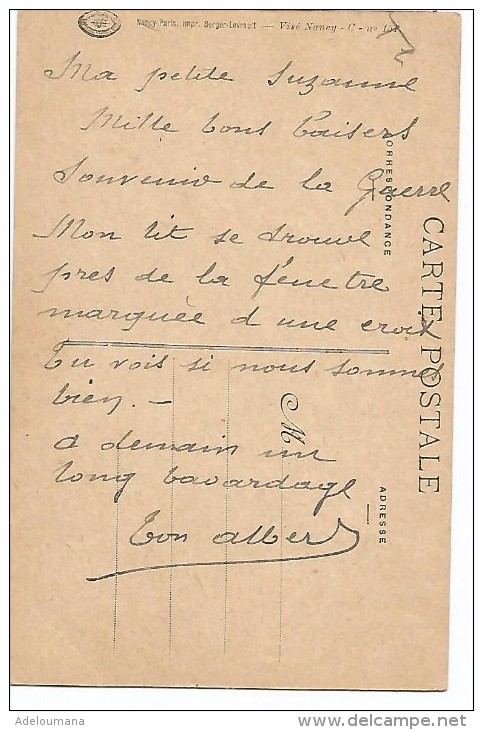 Nancy-Paris, impr. Berger-Levrault — Visé Nancy - C - n°
Ma petite Suzanne
Mille bons baisers
Souvenir de la Guerre
Mon lit se trouve
pres de la fenetre
marquée d une croix
Tu vois si nous sommes
bien. —
a demain un
long bavardage
Ton albert
CARTE POSTALE
CORRESPONDANCE
M
ADRESSE
© Adeloumana
www.delcampe.net